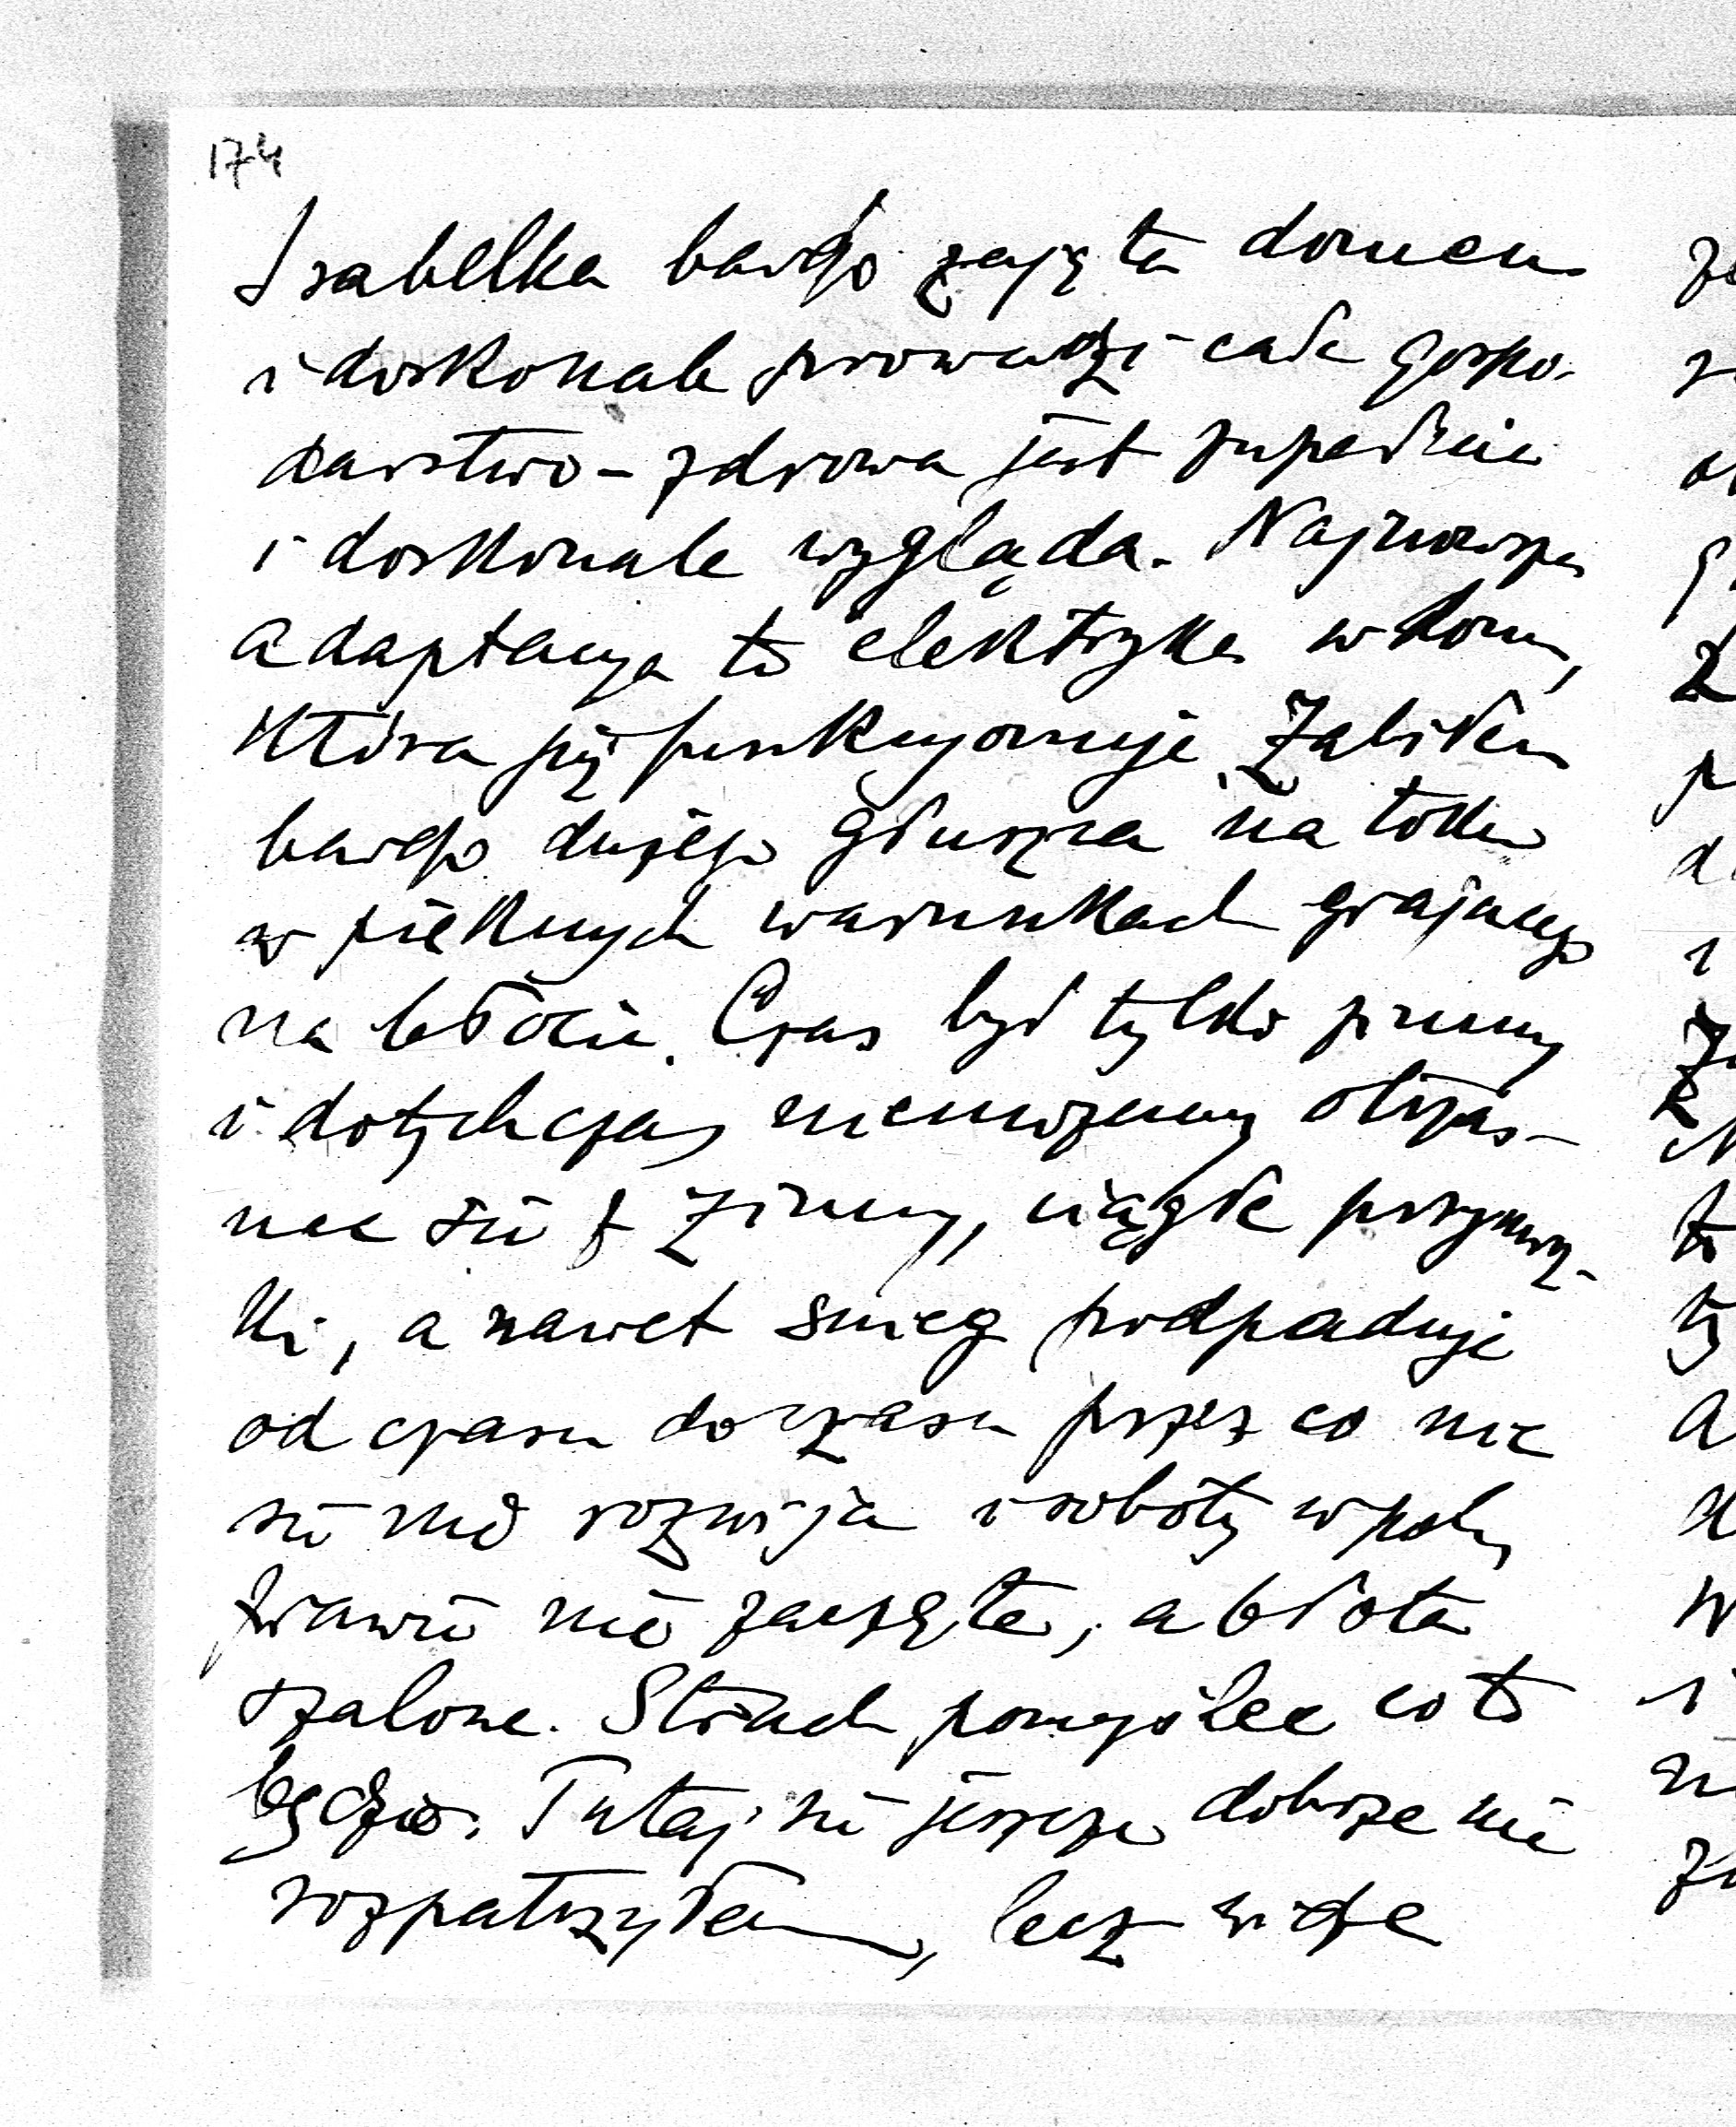 174
Isabelka bardzo zajęta domem
i doskonale prowadzi całe gospo-
darstwo – zdrowa jest zupełnie
i doskonale wygląda. Najnowsza
adaptacya to elektryka w domu,
która już funkcyonuje. Zabiłem
bardzo dużego głuszca na toku
w pięknych warunkach grającego
na błocie. Czas był tylko zimny
i dotychczas niemożemy otrzas-
nąć się z zimy, ciągle przymroz-
ki, a nawet śnieg podpaduje
od czasu do czasu przez co nic
się nie rozwija i roboty w polu
prawie nie zaczęte, a błota
szalone. Strach pomyśleć co to
będzie. Tutaj się jeszcze dobrze nie
rozpatrzyłem, lecz widzę